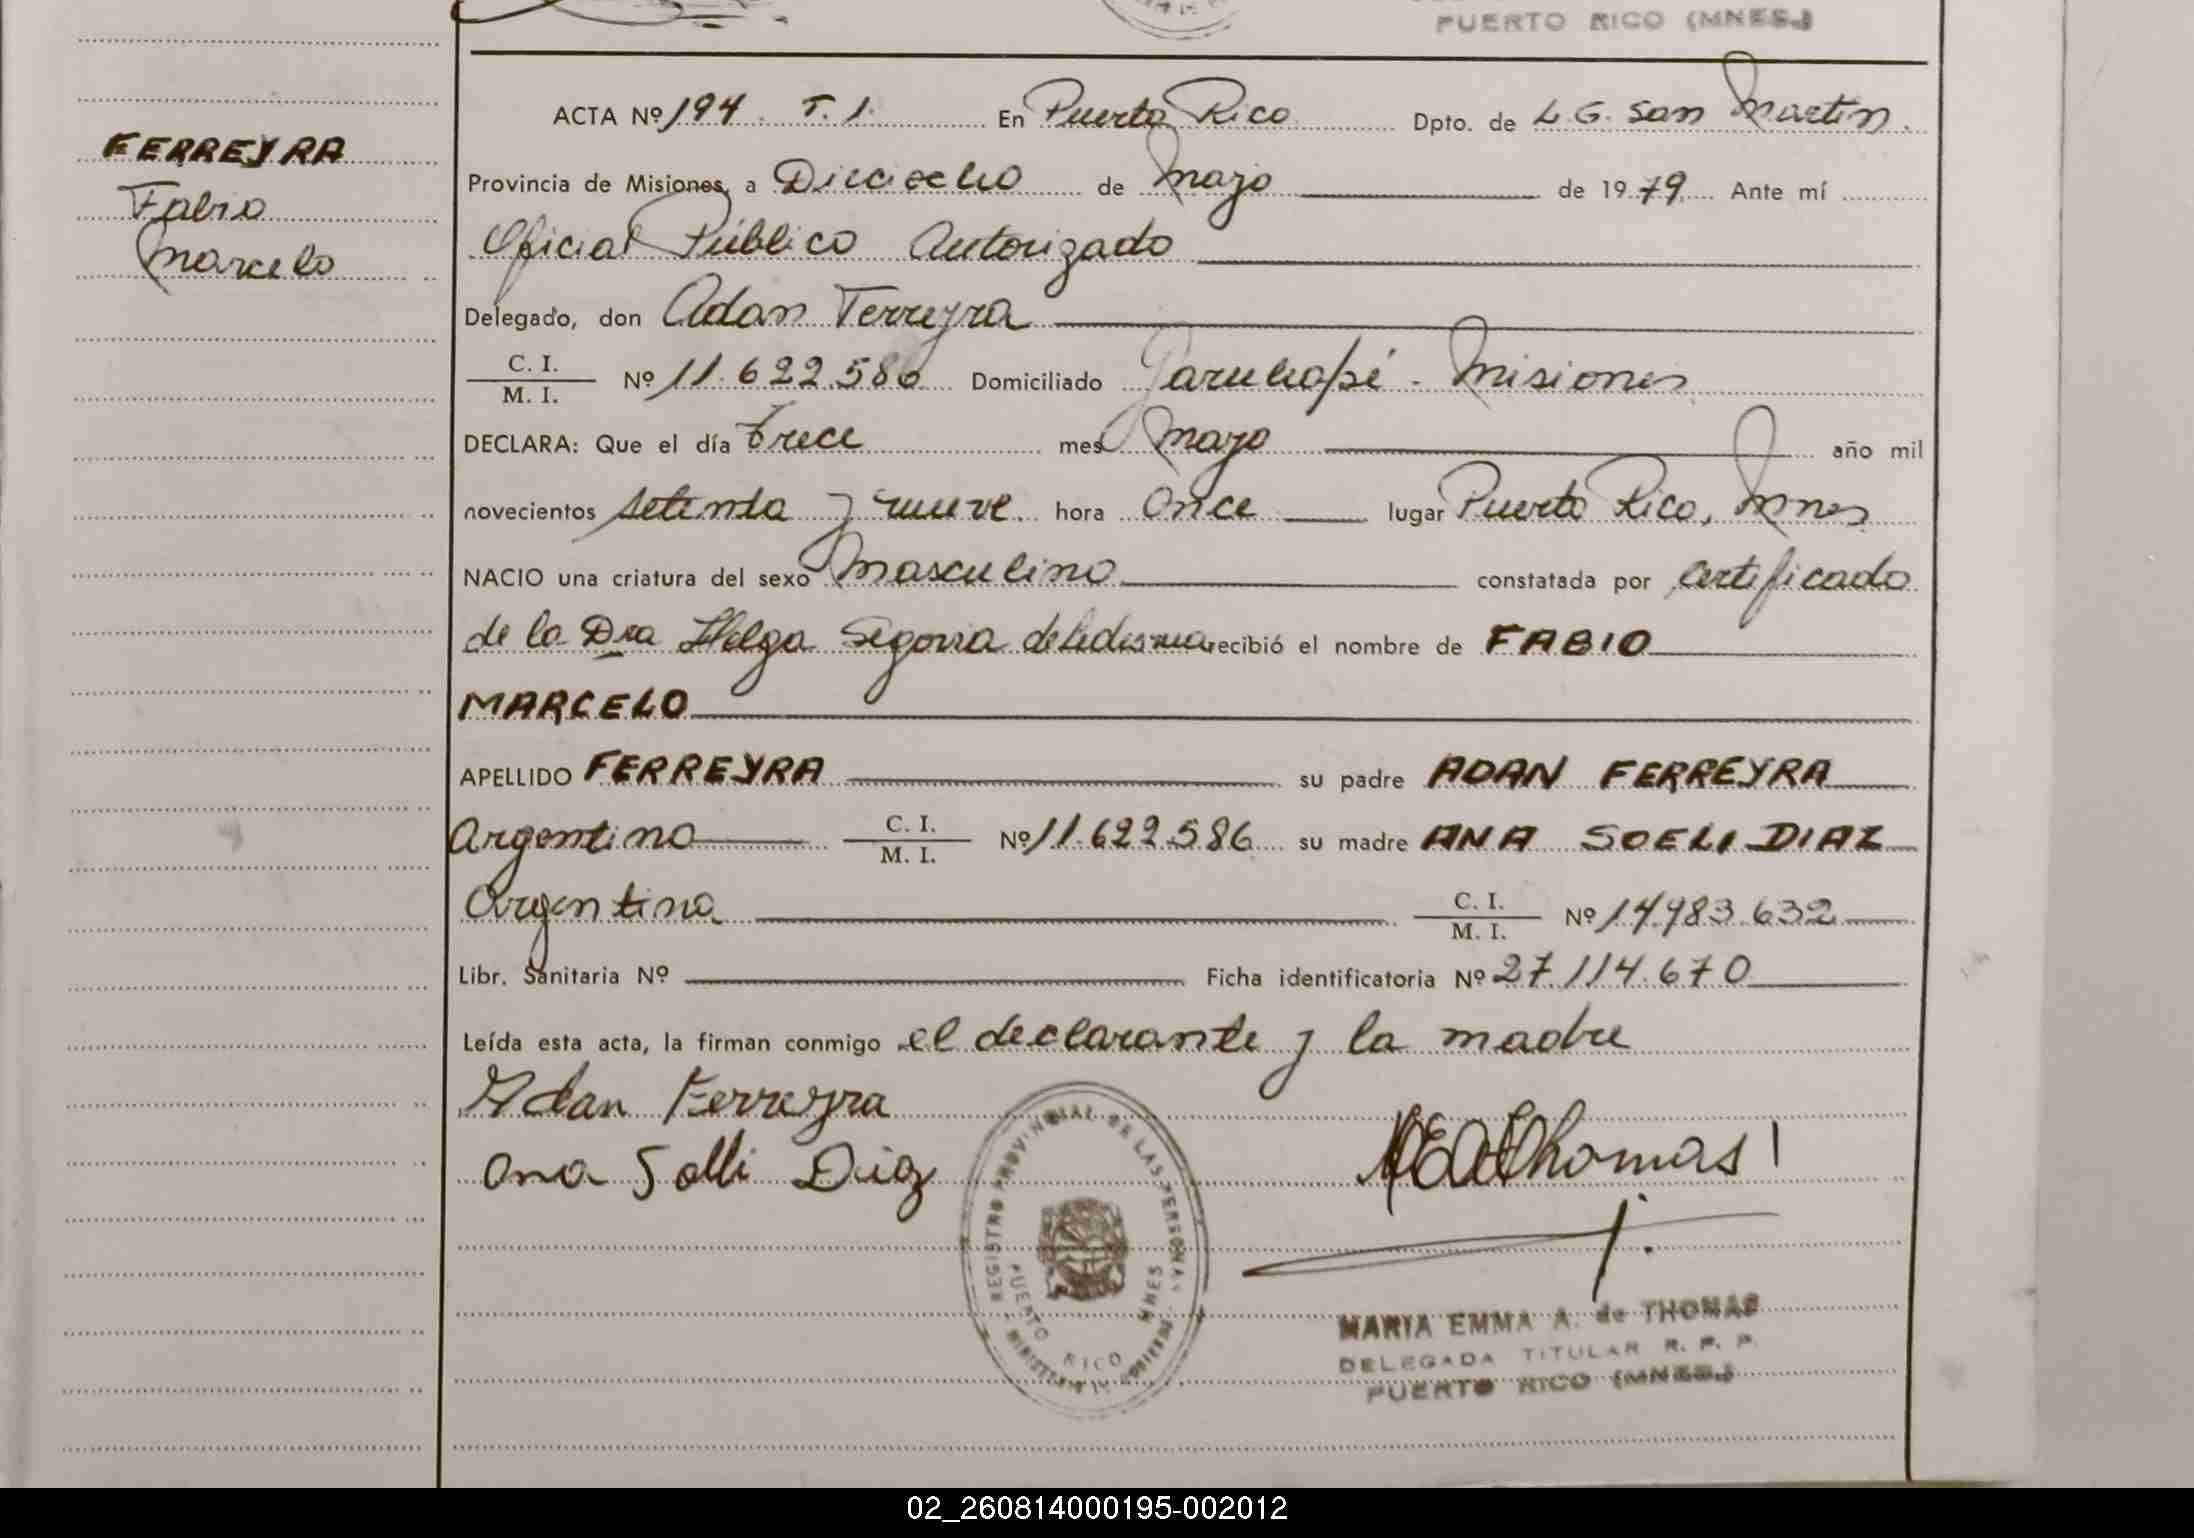 PUERTO RICO (MNES.)
FERREYRA
Fabio
Marcelo
ACTA Nº 194 T. 1. En Puerto Rico Dpto. de L. G. San Martin.
Provincia de Misiones, a Dieciocho de mayo de 1979. Ante mí
Oficial Público Autorizado
Delegado, don Adan Ferreyra
C. I.
M. I. Nº 11.622.586 Domiciliado Garuhapé - Misiones
DECLARA: Que el día trece mes mayo año mil
novecientos setenta y nueve hora once lugar Puerto Rico, Mnes
NACIO una criatura del sexo masculino constatada por certificado
de la Dra Helga Segovia de Ledesma recibió el nombre de FABIO
MARCELO
APELLIDO FERREYRA su padre ADAN FERREYRA
Argentino C. I.
M. I. Nº 11.622.586 su madre ANA SOELI DIAZ
Argentina C. I.
M. I. Nº 14.983.632
Libr. Sanitaria Nº Ficha identificatoria Nº 27.114.670
Leída esta acta, la firman conmigo el declarante y la madre
Adan Ferreyra
Ana Solli Diaz
Thomas
REGISTRO PROVINCIAL DE LAS PERSONAS
PUERTO RICO MNES
MINISTERIO DE GOBIERNO
MARIA EMMA A. de THOMAS
DELEGADA TITULAR R. P. P.
PUERTO RICO (MNES.)
02_260814000195-002012